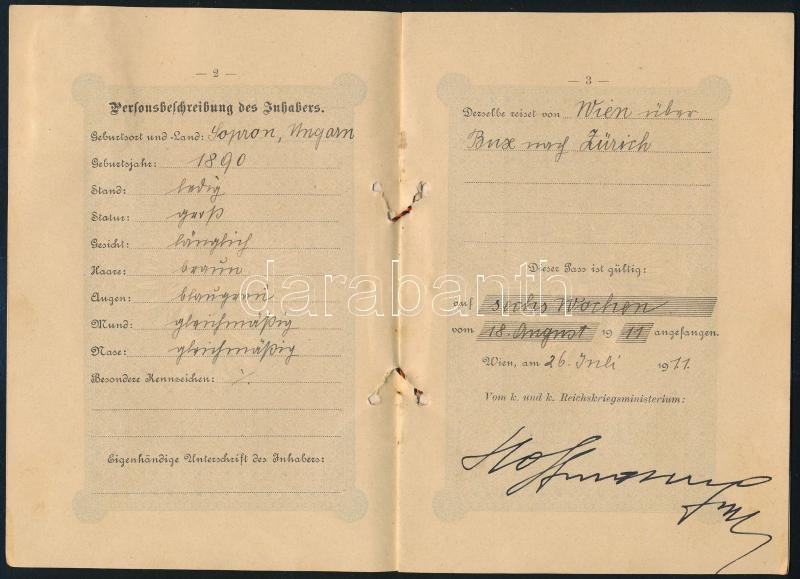 — 2 —
Personsbeschreibung des Inhabers.
Geburtsort und -Land: Sopron, Ungarn
Geburtsjahr: 1890
Stand: ledig
Statur: groß
Gesicht: länglich
Haare: braun
Augen: blaugrau
Mund: gleichmäßig
Nase: gleichmäßig
Besondere Kennzeichen: ./.
Eigenhändige Unterschrift des Inhabers:
— 3 —
Derselbe reiset von Wien über
Bux nach Zürich
Dieser Pass ist gültig:
auf sechs Wochen
vom 18. August 1911 angefangen.
Wien, am 26 Juli 1911.
Vom k. und k. Reichskriegsministerium:
Hoffmann
darabanth.com